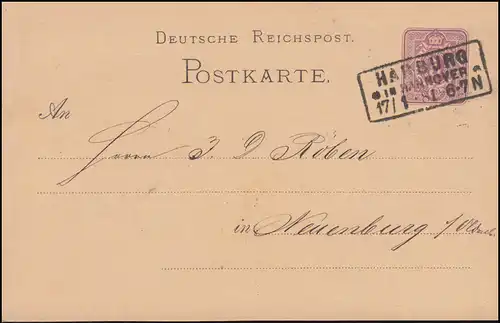 DEUTSCHE REICHSPOST.
POSTKARTE.
HARBURG
IN HANNOVER
17/1 6-7N
An
Herrn J. D. Röben
in Neuenburg